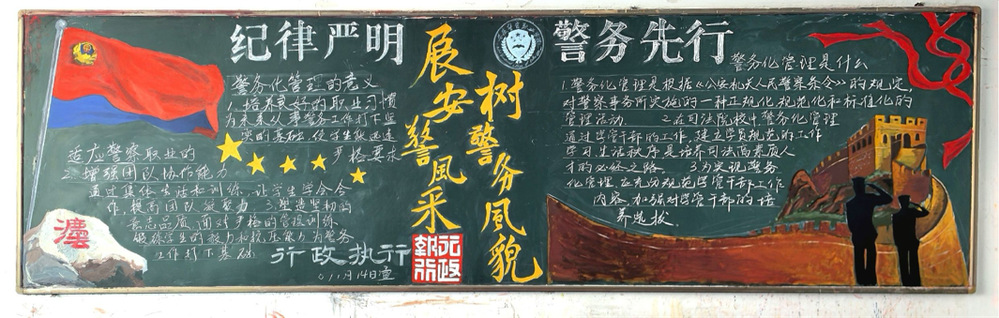 纪律严明
警务化管理的意义
1、培养良好的职业习惯
为未来从事警务工作打下坚
实的基础，使学生能迅速
适应警察职业的
严格要求
2、增强团队协作能力
通过集体生活和训练，让学生学会合
作，提高团队效率力 3、塑造坚韧的
意志品质，面对严格的管控训练
锻炼学生的毅力和抗压能力为警务
工作打下基础
行政执行
11月14日宣
展安警风采
树警务風貌
行政
執行
警务先行
警务化管理是什么
1.警务化管理是根据《公安机关人民警察条令》的规定，
对警察事务所实施的一种正规化规范化和标准化的
管理活动
2.在司法院校中警务化管理
通过学管干部的工作，建立学员规范的工作
学习生活秩序是培养司法高素质人
才的必经之路
3.为实现警务
化管理，应充分规范学管干部工作
内容，加强对学管干部的培
养选拔